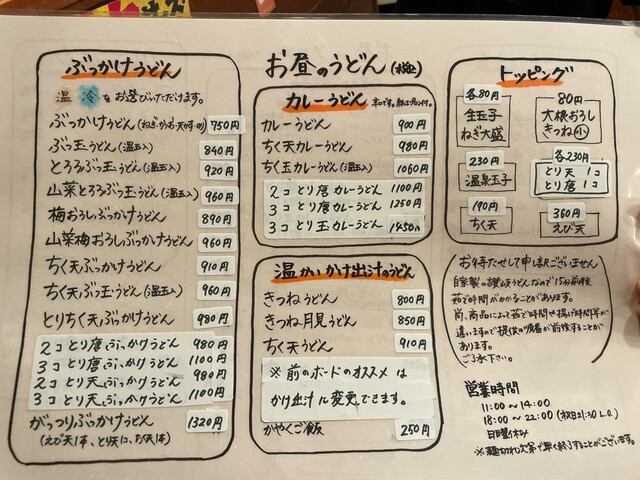 お昼のうどん
ぶっかけうどん
温 冷 をお選びいただけます。
ぶっかけうどん(ねぎ・かつお・天かす・のり) 750円
ぶっ玉うどん(温玉入) 840円
とろろぶっ玉うどん(温玉入) 920円
山菜とろろぶっ玉うどん(温玉入) 960円
梅おろしぶっかけうどん 890円
山菜梅おろしぶっかけうどん 960円
ちく天ぶっかけうどん 910円
ちく天ぶっ玉うどん(温玉入) 960円
とりちく天ぶっかけうどん 980円
2コ とり唐ぶっかけうどん 980円
3コ とり唐ぶっかけうどん 1100円
2コ とり天ぶっかけうどん 980円
3コ とり天ぶっかけうどん 1100円
がっつりぶっかけうどん 1320円
(えび天1本、とり天1コ、ちく天1本)
カレーうどん
カレーうどん 900円
ちく天カレーうどん 980円
ちく玉カレーうどん(温玉入) 1060円
2コ とり唐カレーうどん 1100円
3コ とり唐カレーうどん 1250円
3コ とり玉カレーうどん 1450円
温かいかけ出汁のうどん
きつねうどん 800円
きつね月見うどん 850円
ちく天うどん 910円
※前のボードのオススメは
かけ出汁に変更できます。
かやくご飯 250円
トッピング
各80円
生玉子
ねぎ大盛
80円
大根おろし
きつね小
230円
温泉玉子
各230円
とり天 1コ
とり唐 1コ
190円
ちく天
360円
えび天
お待たせして申し訳ございません
自家製の讃岐うどんなので15分前後
茹で時間がかかることがあります。
尚、商品によって茹で時間や揚げ時間等が
違いますので提供の順番が前後することが
あります。
ご了承下さい。
営業時間
11:00〜14:00
18:00〜22:00 (21:30 L.O.)
日曜休み
※麺切れ次第で早く終了することがございます。